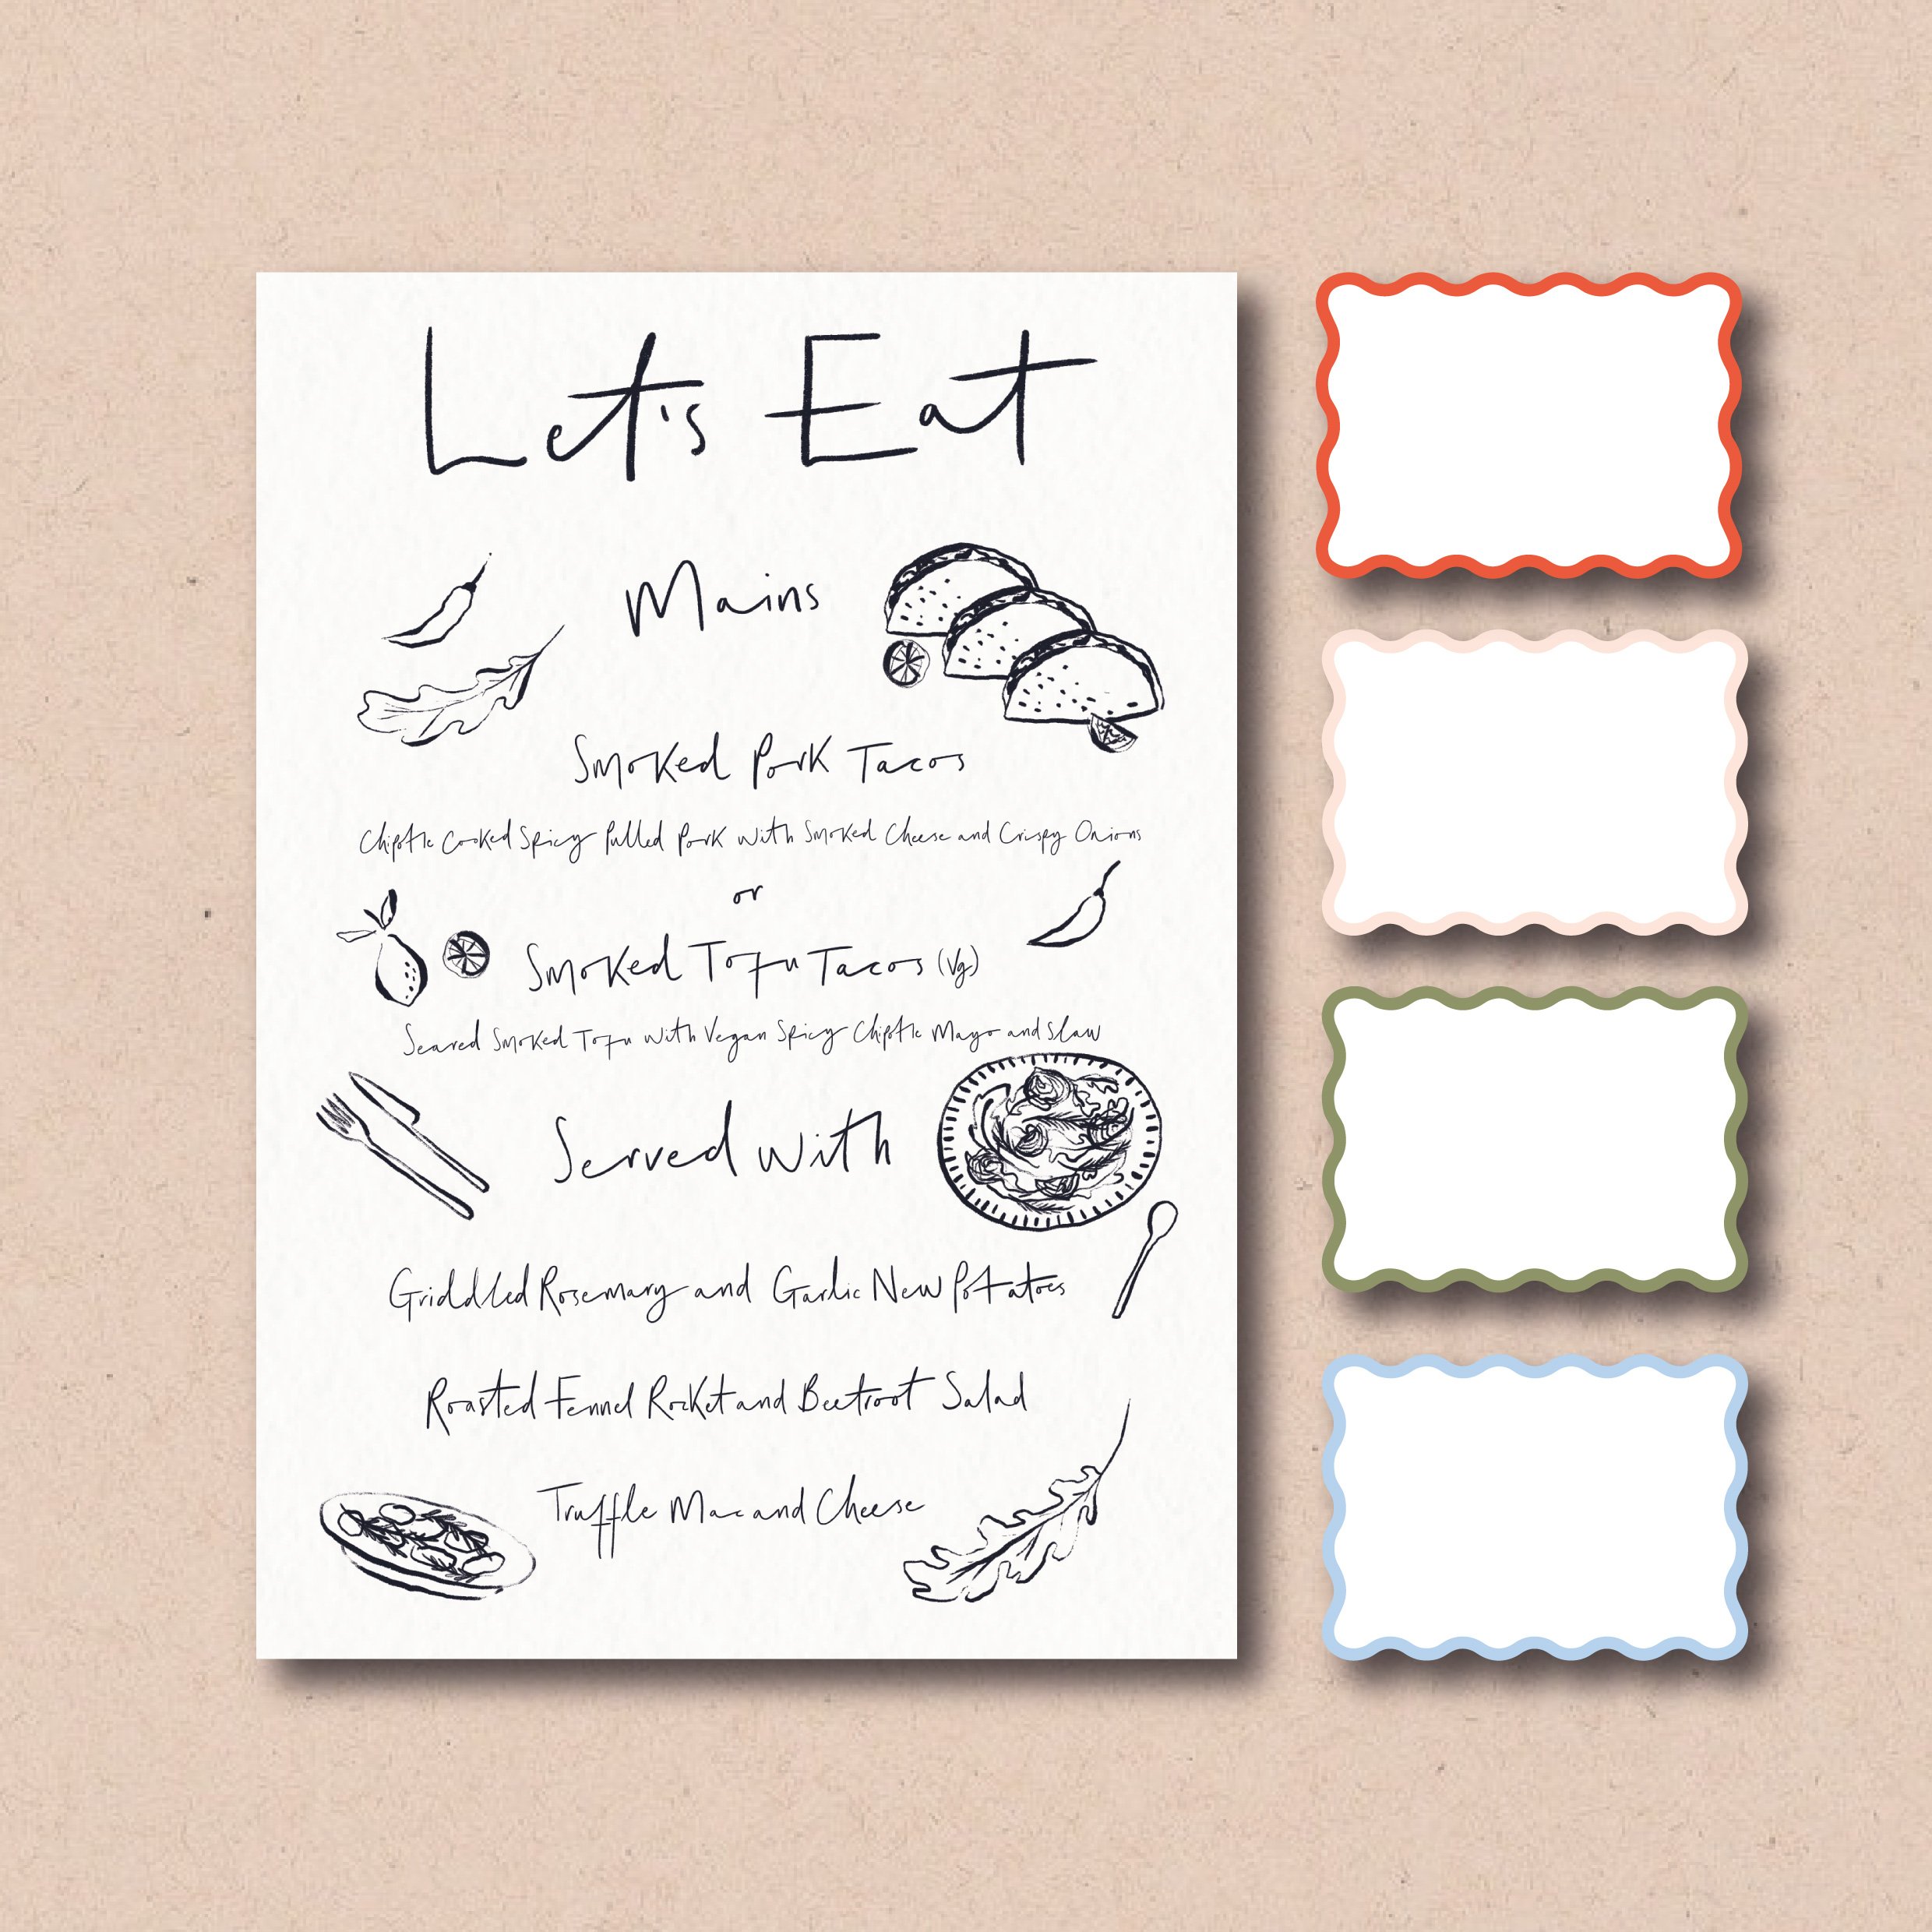 Let's Eat
Mains
Smoked Pork Tacos
Chipotle Cooked Spicy Pulled Pork with Smoked Cheese and Crispy Onions
or
Smoked Tofu Tacos (Vg)
Seared Smoked Tofu with Vegan Spicy Chipotle Mayo and Slaw
Served with
Griddled Rosemary and Garlic New Potatoes
Roasted Fennel Rocket and Beetroot Salad
Truffle Mac and Cheese